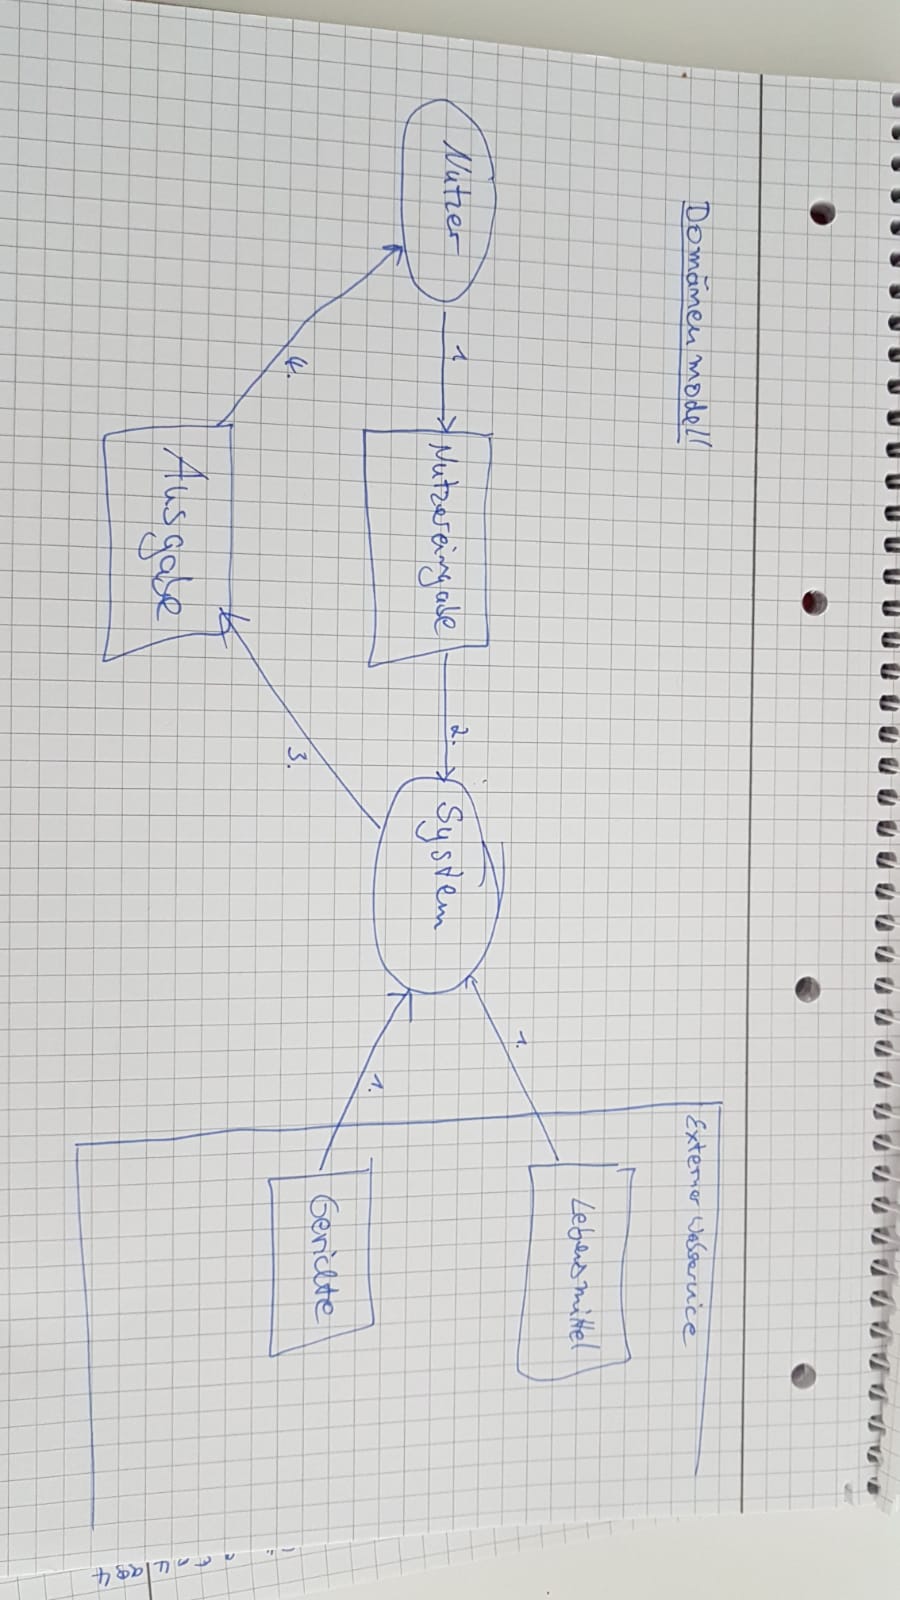 Domänenmodell
Externer Webservice
Lebensmittel
1.
Nutzer
1
Nutzereingabe
2.
System
1.
Gerichte
4.
3.
Ausgabe